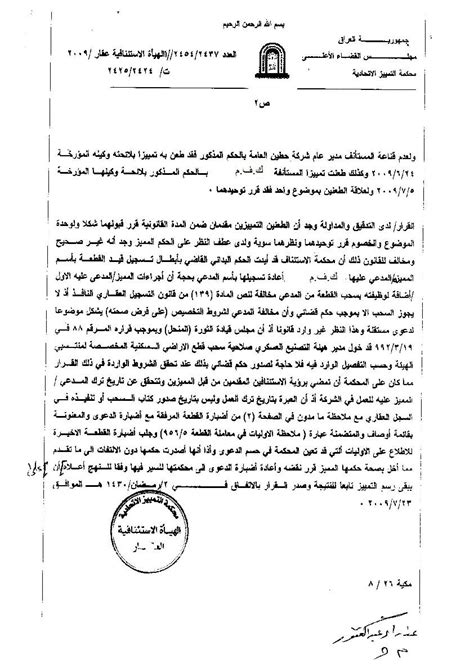 بسم الله الرحمن الرحيم
جمهورية العراق
مجلس القضاء الأعلى
محكمة التمييز الاتحادية
العدد ٢٤٥٤/٢٤٣٧//الهيأة الاستئنافية عقار /٢٠٠٩
ت/ ٢٤٢٥/٢٤٢٤
ص٢
ولعدم قناعة المستأنف مدير عام شركة حطين العامة بالحكم المذكور فقد طعن به تمييزا بلائحته وكيله المؤرخة
٢٠٠٩/٦/٢٤ وكذلك طعنت تمييزا المستأنفة ك.ف.م بالحكم المذكور بلائحة وكيلها المؤرخة
٢٠٠٩/٧/٥ ولعلاقة الطعنين بموضوع واحد فقد قرر توحيدهما ٠
القرار/ لدى التدقيق والمداولة وجد أن الطعنين التمييزين مقدمان ضمن المدة القانونية قرر قبولهما شكلا ولوحدة
الموضوع والخصوم قرر توحيدهما ونظرهما سوية ولدى عطف النظر على الحكم المميز وجد أنه غير صحيح
ومخالف للقانون ذلك أن محكمة الاستئناف قد أيدت الحكم البدائي القاضي بأبطال تسجيل قيد القطعة بأسم
المميز/المدعي عليها ك.ف.م أعادة تسجيلها بأسم المدعي بحجة أن أجراءات المميز/المدعى عليه الاول
/أضافة لوظيفته بسحب القطعة من المدعي مخالفة لنص المادة (١٣٩) من قانون التسجيل العقاري النافذ أذ لا
يجوز السحب الا بموجب حكم قضائي وأن مخالفة المدعي لشروط التخصيص (على فرض صحته) يشكل موضوعا
لدعوى مستقلة وهذا النظر غير وارد قانونا أذ أن مجلس قيادة الثورة (المنحل) وبموجب قراره المرقم ٨٨ في
٩٩٢/٣/١٩ قد خول مدير هيئة التصنيع العسكري صلاحية سحب قطع الاراضي السكنية المخصصة لمنتسبي
الهيئة وحسب التفصيل الوارد فيه فلا حاجة لصدور حكم قضائي بذلك عند تحقق الشروط الواردة في ذلك القرار
مما كان على المحكمة أن تمضي برؤية الاستئنافين المقدمين من قبل المميزين وتتحقق عن تاريخ ترك المدعي /
المميز عليه للعمل في الشركة أذ أن العبرة بتاريخ ترك العمل وليس بتاريخ صدور كتاب السحب أو تنفيذه في
السجل العقاري مع ملاحظة ما مدون في الصفحة (٢) من أضبارة القطعة المرفقة مع أضبارة الدعوى والمعنونة
بقائمة أوصاف والمتضمنة عبارة ( ملاحظة الاوليات في معاملة القطعة ٩٥٦/٥) وجلب أضبارة القطعة الاخيرة
للاطلاع على الاوليات التي قد تعين المحكمة في حسم الدعوى وأذا أنها أصدرت حكمها دون الالتفات الى ما تقدم
مما أخل بصحة حكمها المميز قرر نقضه وأعادة أضبارة الدعوى الى محكمتها للسير فيها وفقا للنهج أعلاه
يبقى رسم التمييز تابعا للنتيجة وصدر القرار بالاتفاق في ٢/رمضان/١٤٣٠ هـ الموافق
٢٠٠٩/٧/٢٣ ٠
محكمة التمييز الاتحادية
الهيأة الاستئنافية
العقار
مكية ٢٦ / ٨